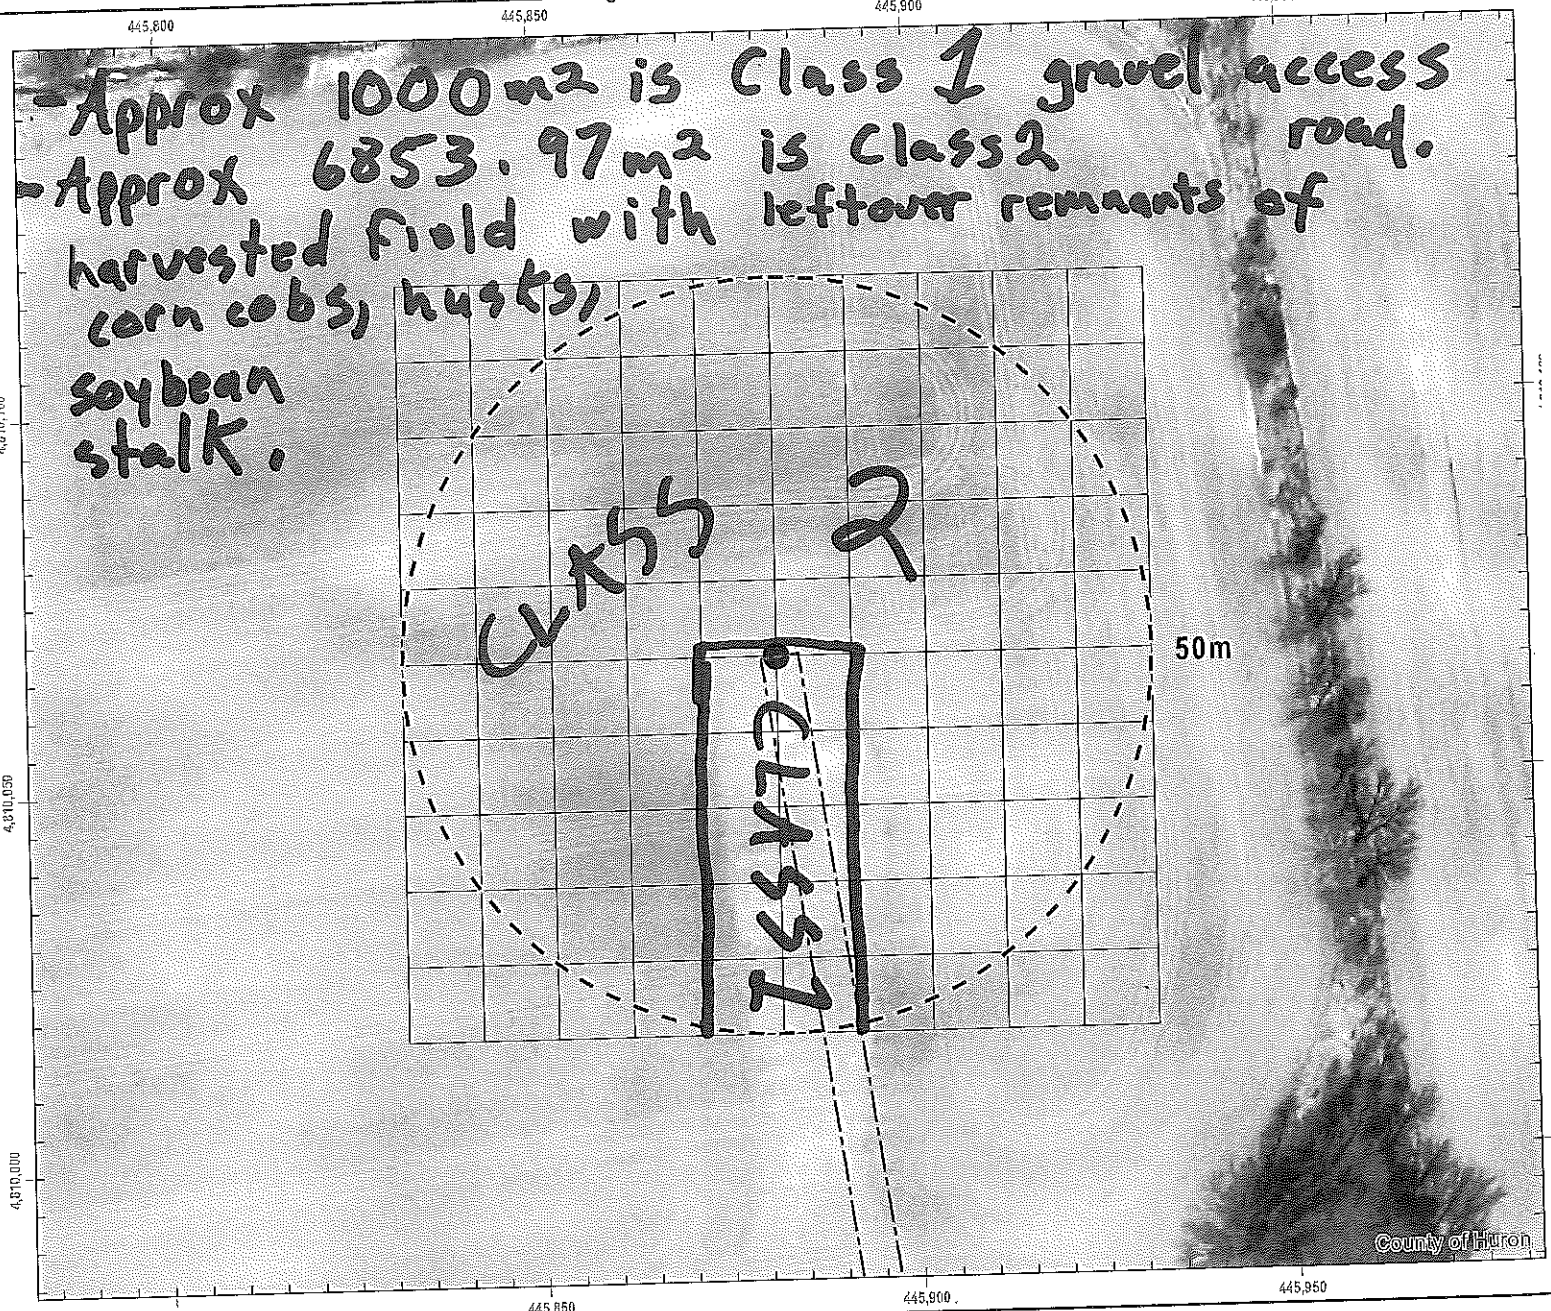 445,800
445,850
445,900
-Approx 1000m² is Class 1 gravel access road.
-Approx 6853.97m² is Class 2
harvested field with leftover remnants of
corn cobs, husks,
soybean
stalk.
CLASS 2
50m
CLASS 1
4,810,050
4,810,000
County of Huron
445,850
445,900
445,950